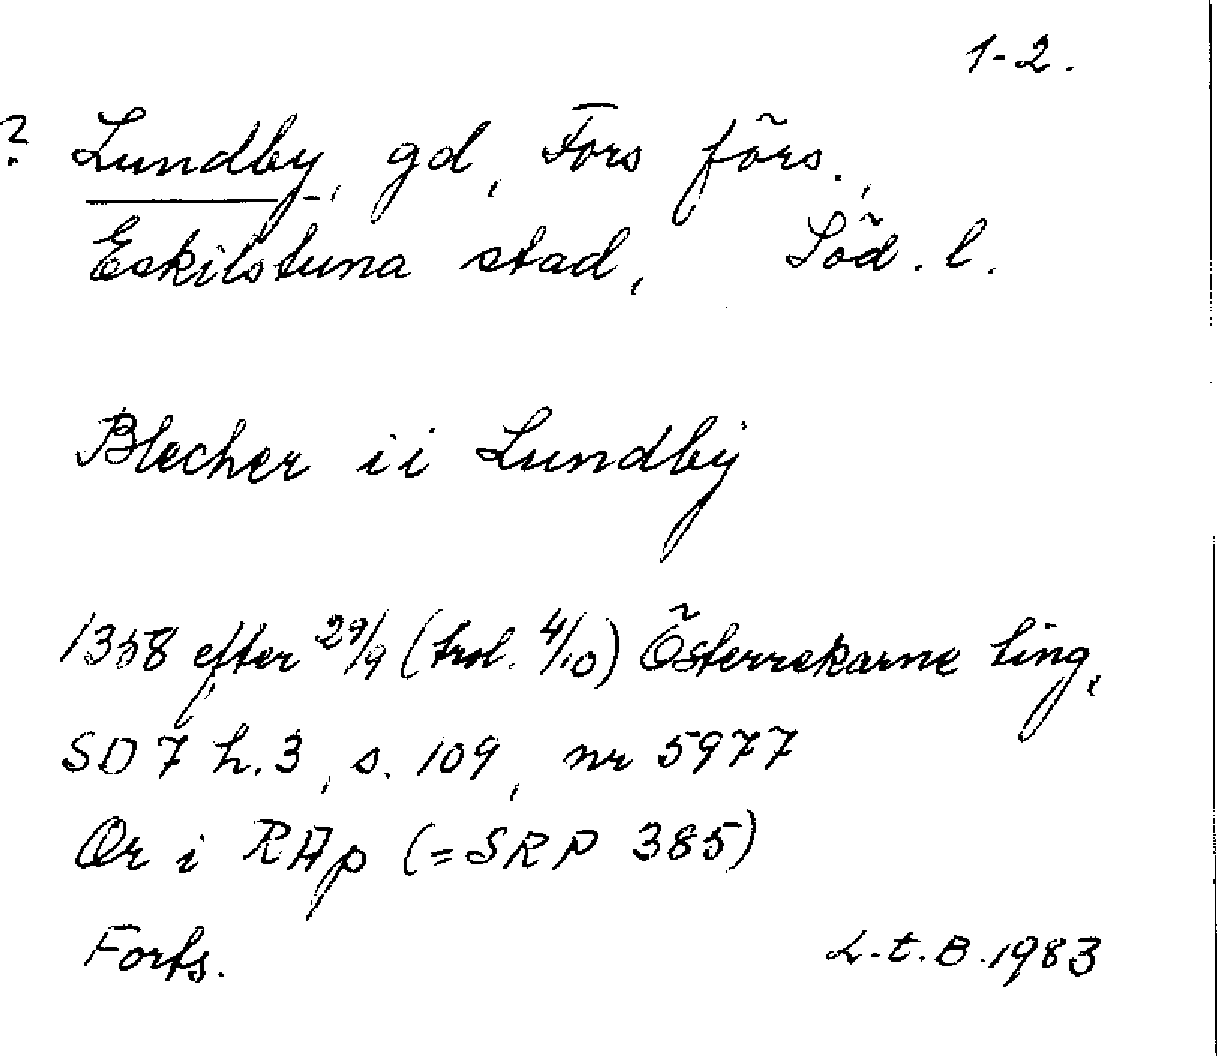 1-2.
? Lundby, gd, Fors förs.,
Eskilstuna stad, Söd. l.
Blecher ii Lundby
1358 efter 29/9 (trol. 4/10) Österrekarne ting,
SD 7 h. 3, s. 109, nr 5977
Or i RAp (=SRP 385)
Forts. L.t.B. 1983